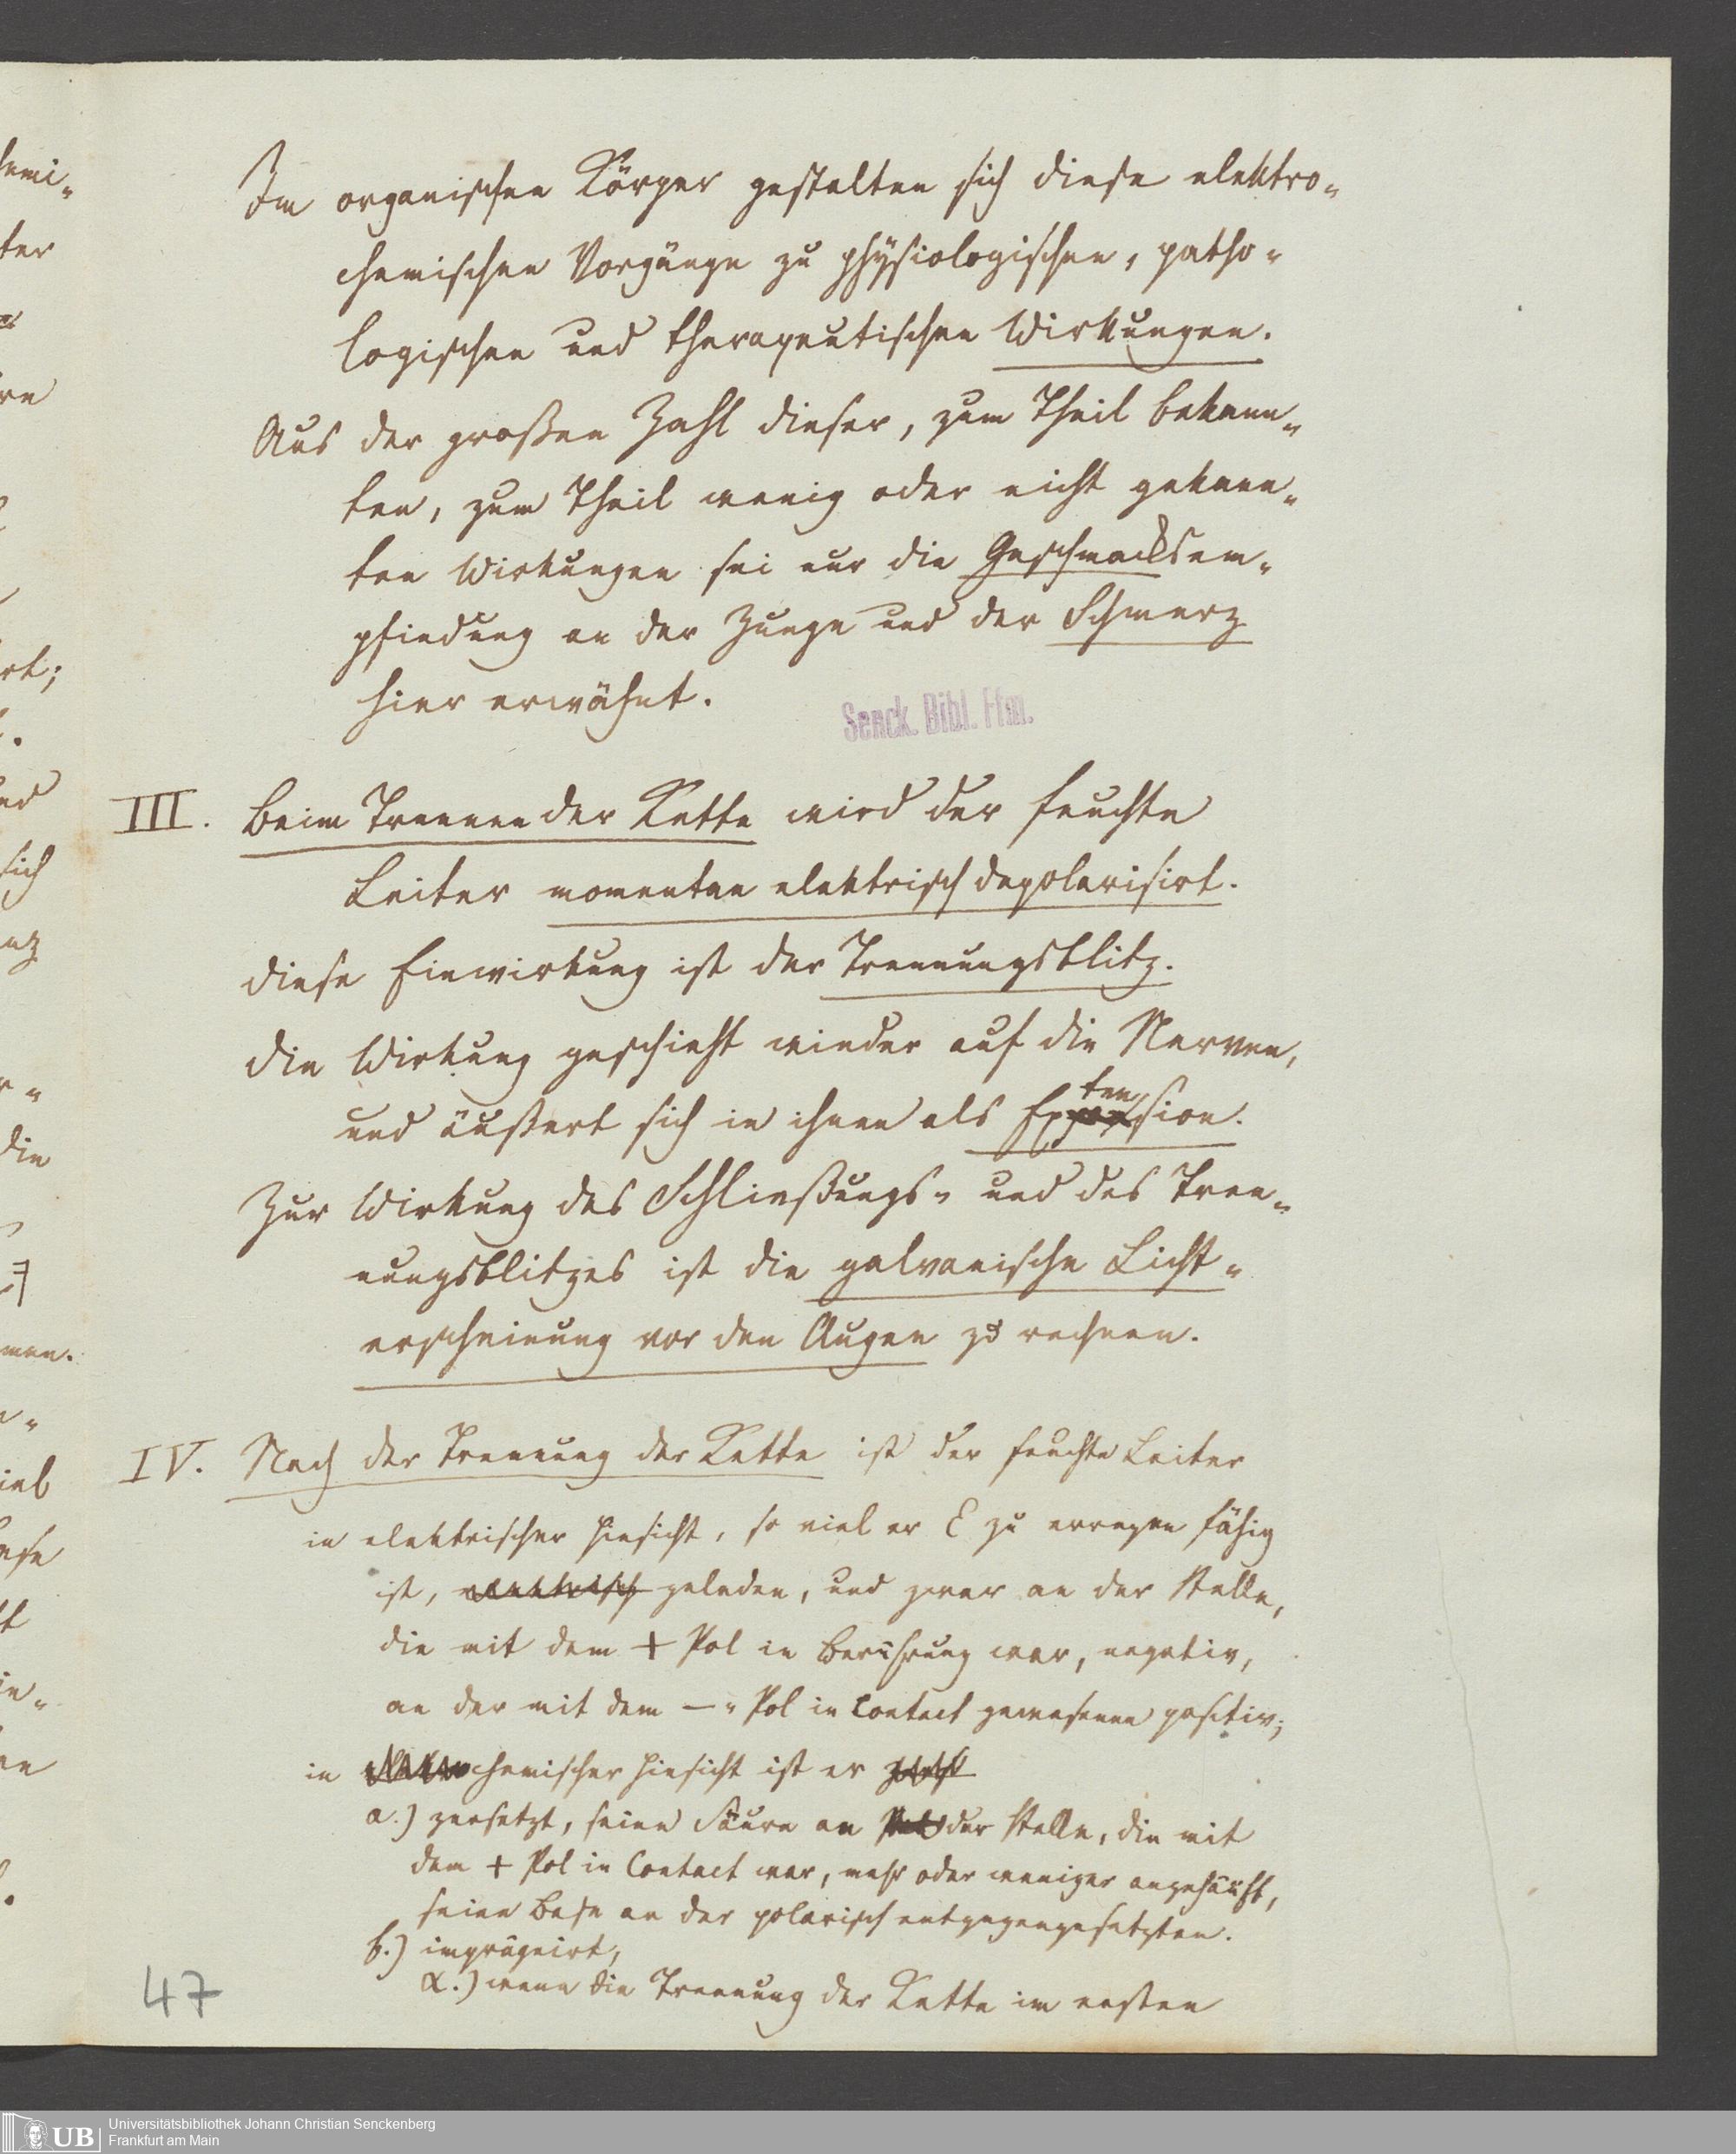 Im organischen Körper gestalten sich diese elektro-
chemischen Vorgänge zu physiologischen, patho-
logischen und therapeutischen Wirkungen.
Aus der großen Zahl dieser, zum Theil bekann-
ten, zum Theil wenig oder nicht gekann-
ten Wirkungen sei nur die Geschmacksem-
pfindung an der Zunge und der Schmerz
hier erwähnt.
Senck. Bibl. Ffm.
III. Beim Trennen der Kette wird der feuchte
Leiter momentan elektrisch depolarisirt.
Diese Einwirkung ist der Trennungsblitz.
Die Wirkung geschieht wieder auf die Nerven,
und äußert sich in ihnen als Extension.
Zur Wirkung des Schließungs- und des Tren-
nungsblitzes ist die galvanische Licht-
erscheinung vor den Augen zu rechnen.
IV. Nach der Trennung der Kette ist der feuchte Leiter
in elektrischer Hinsicht, so viel er E zu erregen fähig
ist, elektrisch geladen, und zwar an der Stelle,
die mit dem + Pol in Berührung war, negativ,
an der mit dem — - Pol in Contact gewesenen positiv;
in chemischer Hinsicht ist er
a.) zersetzt, seine Säure an der Stelle, die mit
dem + Pol in Contact war, mehr oder weniger angehäuft,
seine Base an der polarisch entgegengesetzten.
b.) imprägnirt,
α.) wenn die Trennung der Kette im ersten
47
UB Universitätsbibliothek Johann Christian Senckenberg
Frankfurt am Main